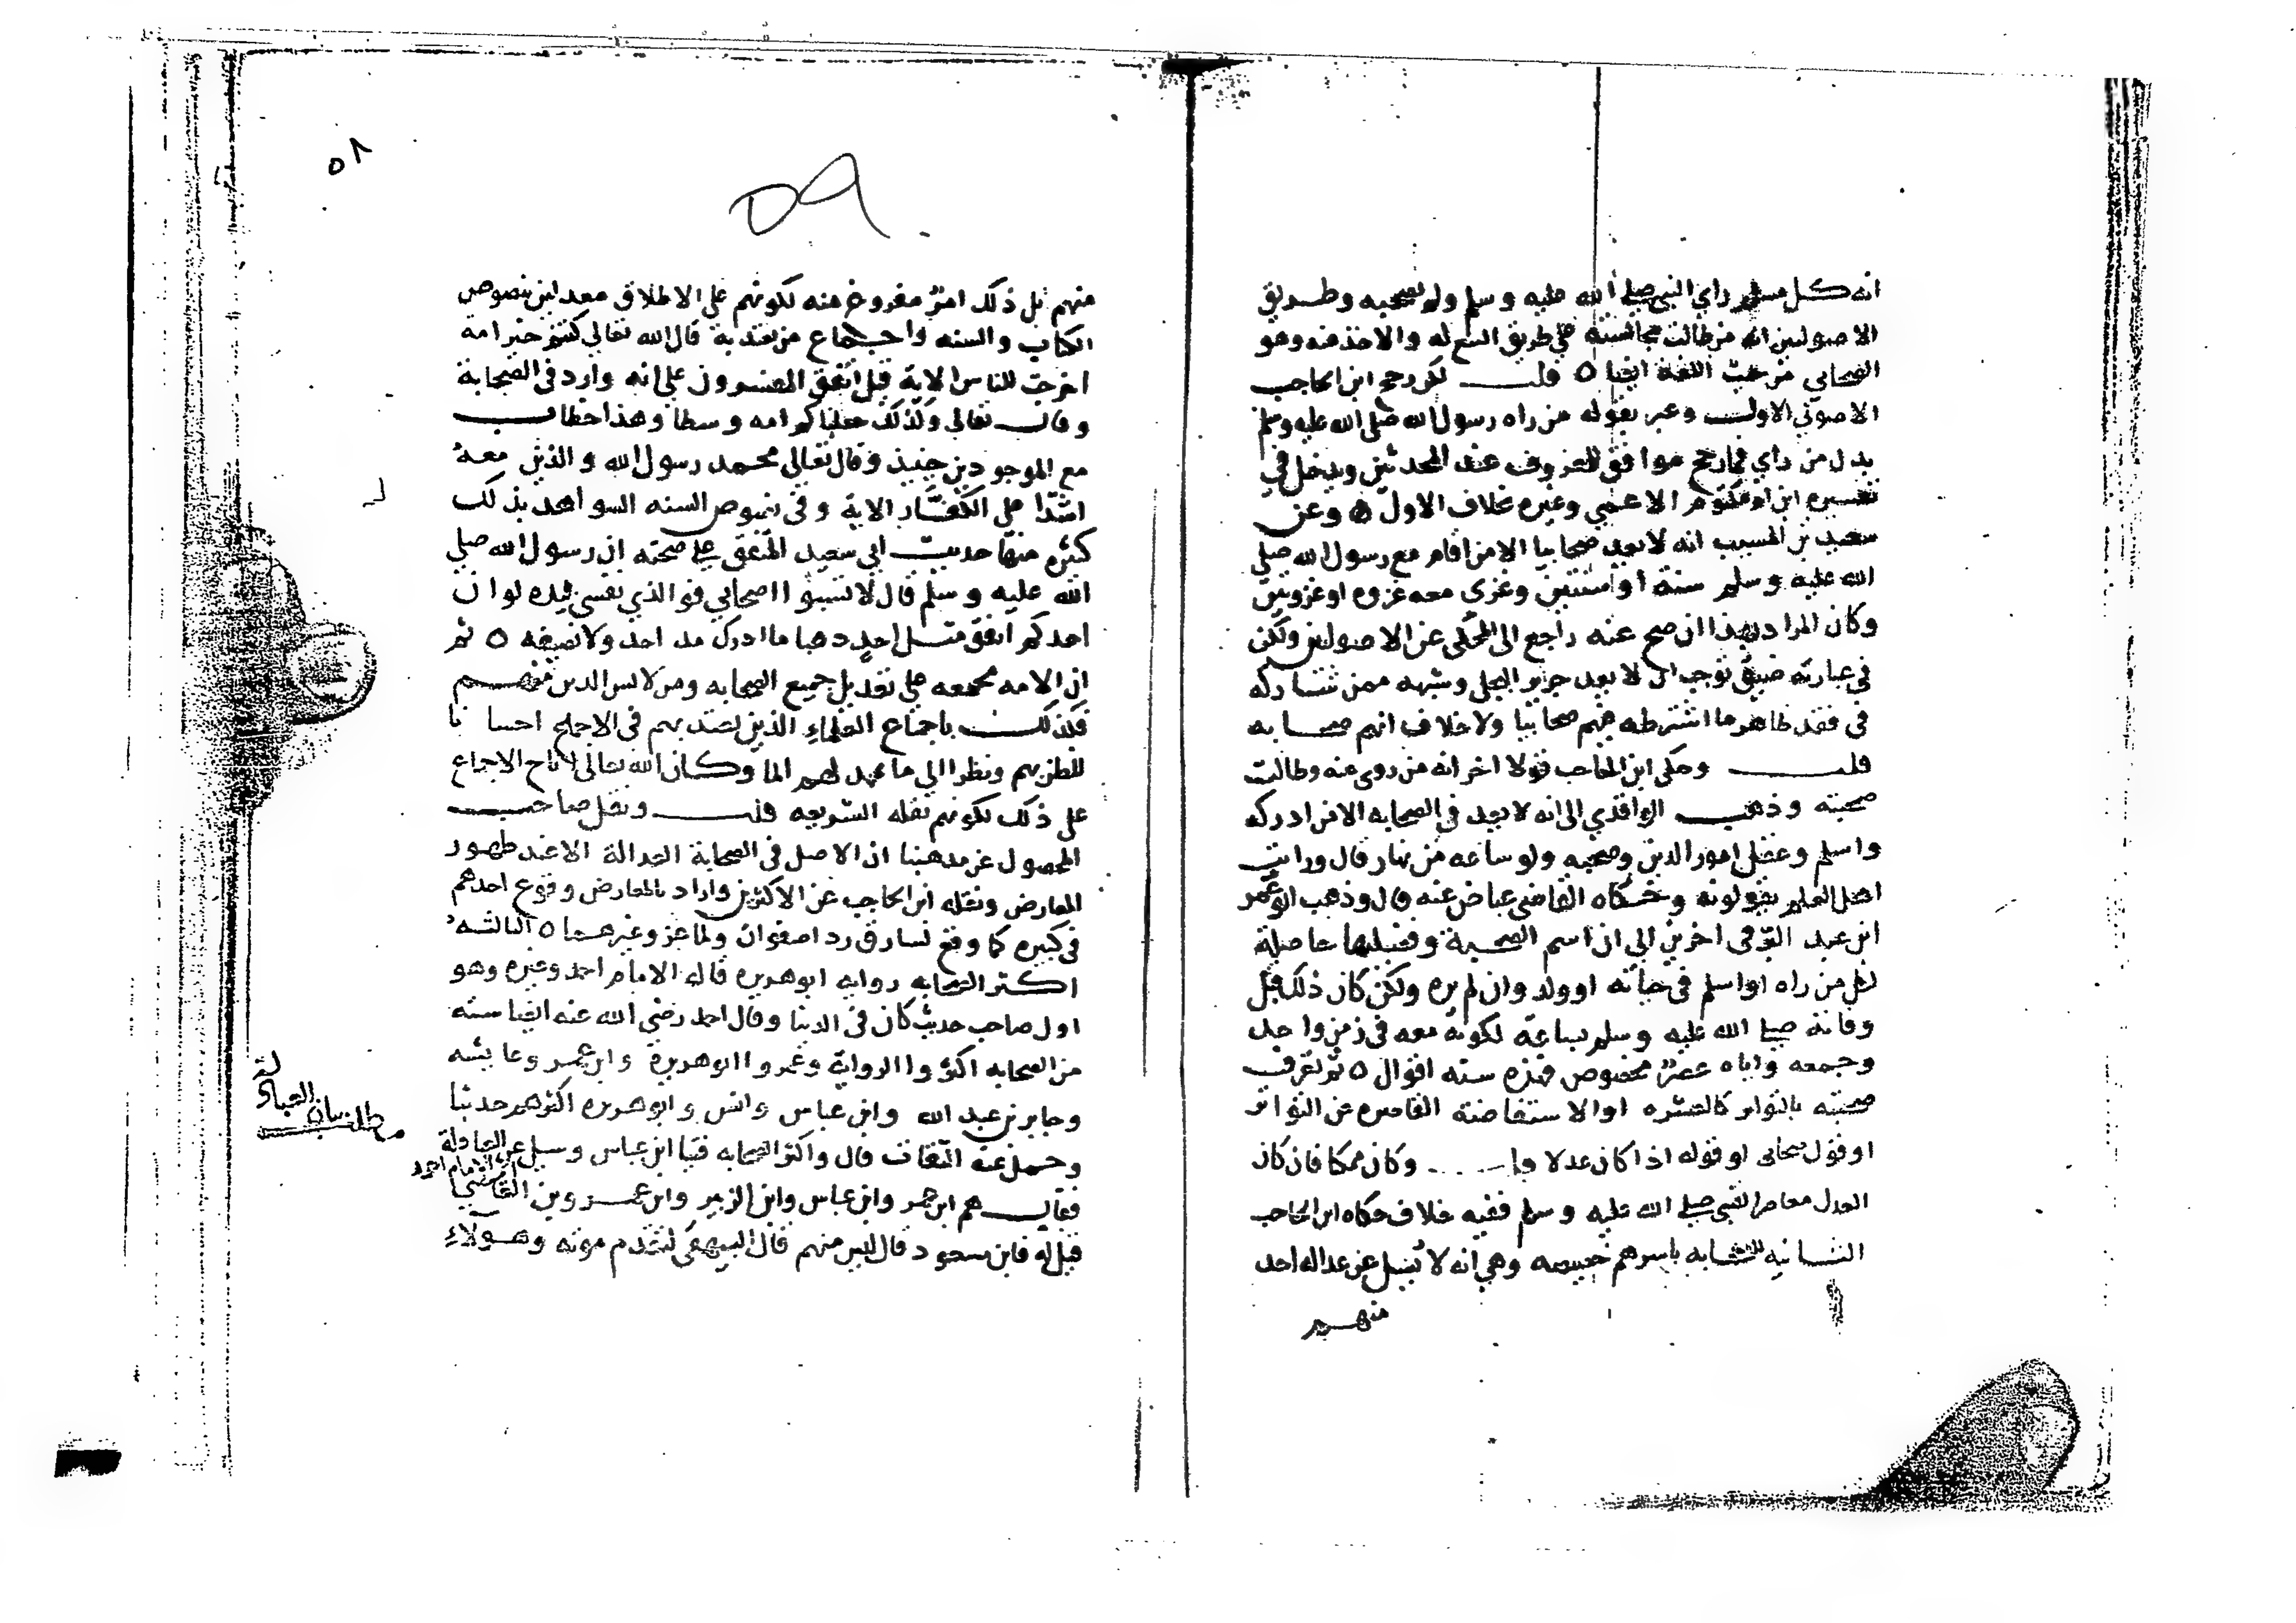 انه كل مسلم راي النبي صلي الله عليه وسلم ولو لم يصحبه وطريق
الاصوليين انه من طالت مجالسته علي طريق التبع له والاخذ منه وهو
الصحابي من حيث اللغة ايضا ٥ قلت لكن رجح ابن الحاجب
الاصولي الاول وعبر بقوله من راه رسول الله صلى الله عليه وسلم
بدل من راي فما رجح موافق للمعروف عند المحدثين ويدخل في
تفسيره ابن ام مكتوم الاعمي وغيره بخلاف الاول ٥ وعن
سعيد بن المسيب انه لا يعد صحابيا الا من اقام مع رسول الله صلي
الله عليه وسلم سنة او سنتين وغزى معه غزوه او غزوتين
وكان المراد بهذا ان صح عنه راجع الى المحكى عن الاصوليين ولكن
في عبارته ضيق توجب ان لا يعد جرير البجلي وشبهه ممن شاركه
في فقد ظاهر ما اشترطه فيهم صحابيا ولا خلاف انهم صحابه
قلت وحكى ابن الحاجب قولا اخر انه من روى عنه وطالت
صحبته وذهب الواقدي الى انه لا يعد في الصحابه الا من ادركه
واسلم وعقل امور الدين وصحبه ولو ساعه من نهار قال ورايت
اهل العلم يقولونه وحكاه القاضي عياض عنه قال وذهب ابو عمر
ابن عبد البر في اخرين الي ان اسم الصحبة وفضلها حاصلة
لكل من راه او اسلم في حياته او ولد وان لم يره ولكن كان ذلك قبل
وفاته صلي الله عليه وسلم بساعة لكونه معه في زمن واحد
وجمعه واياه عصر مخصوص فهذه سته اقوال ٥ ثم تعرف
صحبته بالتواتر كالعشره او الاستفاضة القاصره عن التواتر
او قول صحابي او قوله اذا كان عدلا وكان ممكا فان كان
العدل معاصر النبي صلي الله عليه وسلم ففيه خلاف حكاه ابن الحاجب
الثانيه للصحابه باسرهم خصيصه وهي انه لا يسل عن عداله احد
منهم
٥٨
٥٩
منهم بل ذلك امر مفروغ منه لكونهم علي الاطلاق معدلين بنصوص
الكتاب والسنه واجماع من يعتد به قال الله تعالي كنتم خير امة
اخرجت للناس الاية قيل اتفق المفسرون علي انه وارد في الصحابة
وقال تعالى وكذلك جعلناكم امه وسطا وهذا خطاب
مع الموجودين حينيذ وقال تعالي محمد رسول الله والذين معه
اشدا علي الكفار الاية وفي نصوص السنه الشواهد بذلك
كثره منها حديث ابي سعيد المتفق علي صحته ان رسول الله صلي
الله عليه وسلم قال لا تسبوا اصحابي فوالذي نفسي بيده لو ان
احدكم انفق مثل احد ذهبا ما ادرك مد احد ولا نصيفه ٥ ثم
ان الامه مجمعه علي تعديل جميع الصحابه ومن لابس الفتن منهم
فكذلك باجماع العلماء الذين يعتد بهم في الاجماع احسانا
للظن بهم ونظرا الي ما تمهد لهم من الماثر وكان الله تعالي اتاح الاجماع
علي ذلك لكونهم نقله الشريعه قلت ونقل صاحب
المحصول عن مذهبنا ان الاصل في الصحابة العدالة الا عند ظهور
المعارض ونقله ابن الحاجب عن الاكثرين واراد بالمعارض وقوع احدهم
في كبيره كما وقع لسارق ردا صفوان ولماعز وغيرهما ٥ الثالثه
اكثر الصحابه روايه ابو هريره قاله الامام احمد وغيره وهو
اول صاحب حديث كان في الدنيا وقال احمد رضي الله عنه ايضا سته
من الصحابه اكثروا الرواية وعمروا ابو هريرة وابن عمر وعايشه
وجابر بن عبد الله وابن عباس وانس وابو هريره اكثرهم حديثا
وحمل عنه الثقات قال واكثر الصحابه فتيا ابن عباس وسيل عن العبادلة
الامام احمد
فقال هم ابن عمر وابن عباس وابن الزبير وابن عمرو بن العاصي
قيل له فابن مسعود قال ليس منهم قال البيهقي لتقدم موته وهولاء
مطلب بيان العبادلة